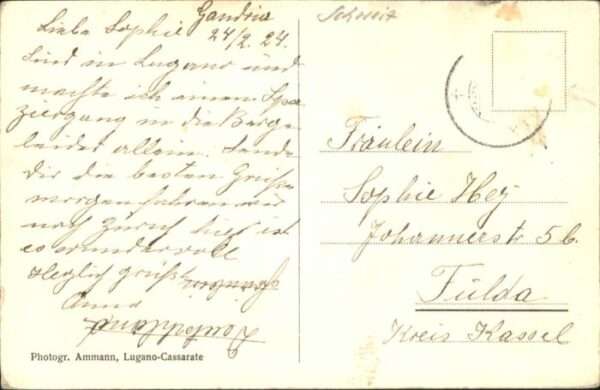 Gandria
Liebe Sophie 24/2. 24.
Sind in Lugano und
machte ich einen Spa-
ziergang in die Berge
leider allein. Sende
Dir die besten Grüße
morgen fahren wir
nach Zürich hier ist
es wundervoll
Herzlich grüßt
Anna
Deutschland
Photogr. Ammann, Lugano-Cassarate
Schweiz
Fräulein
Sophie Hey
Johannerstr 5 b.
Fulda
Kreis Kassel